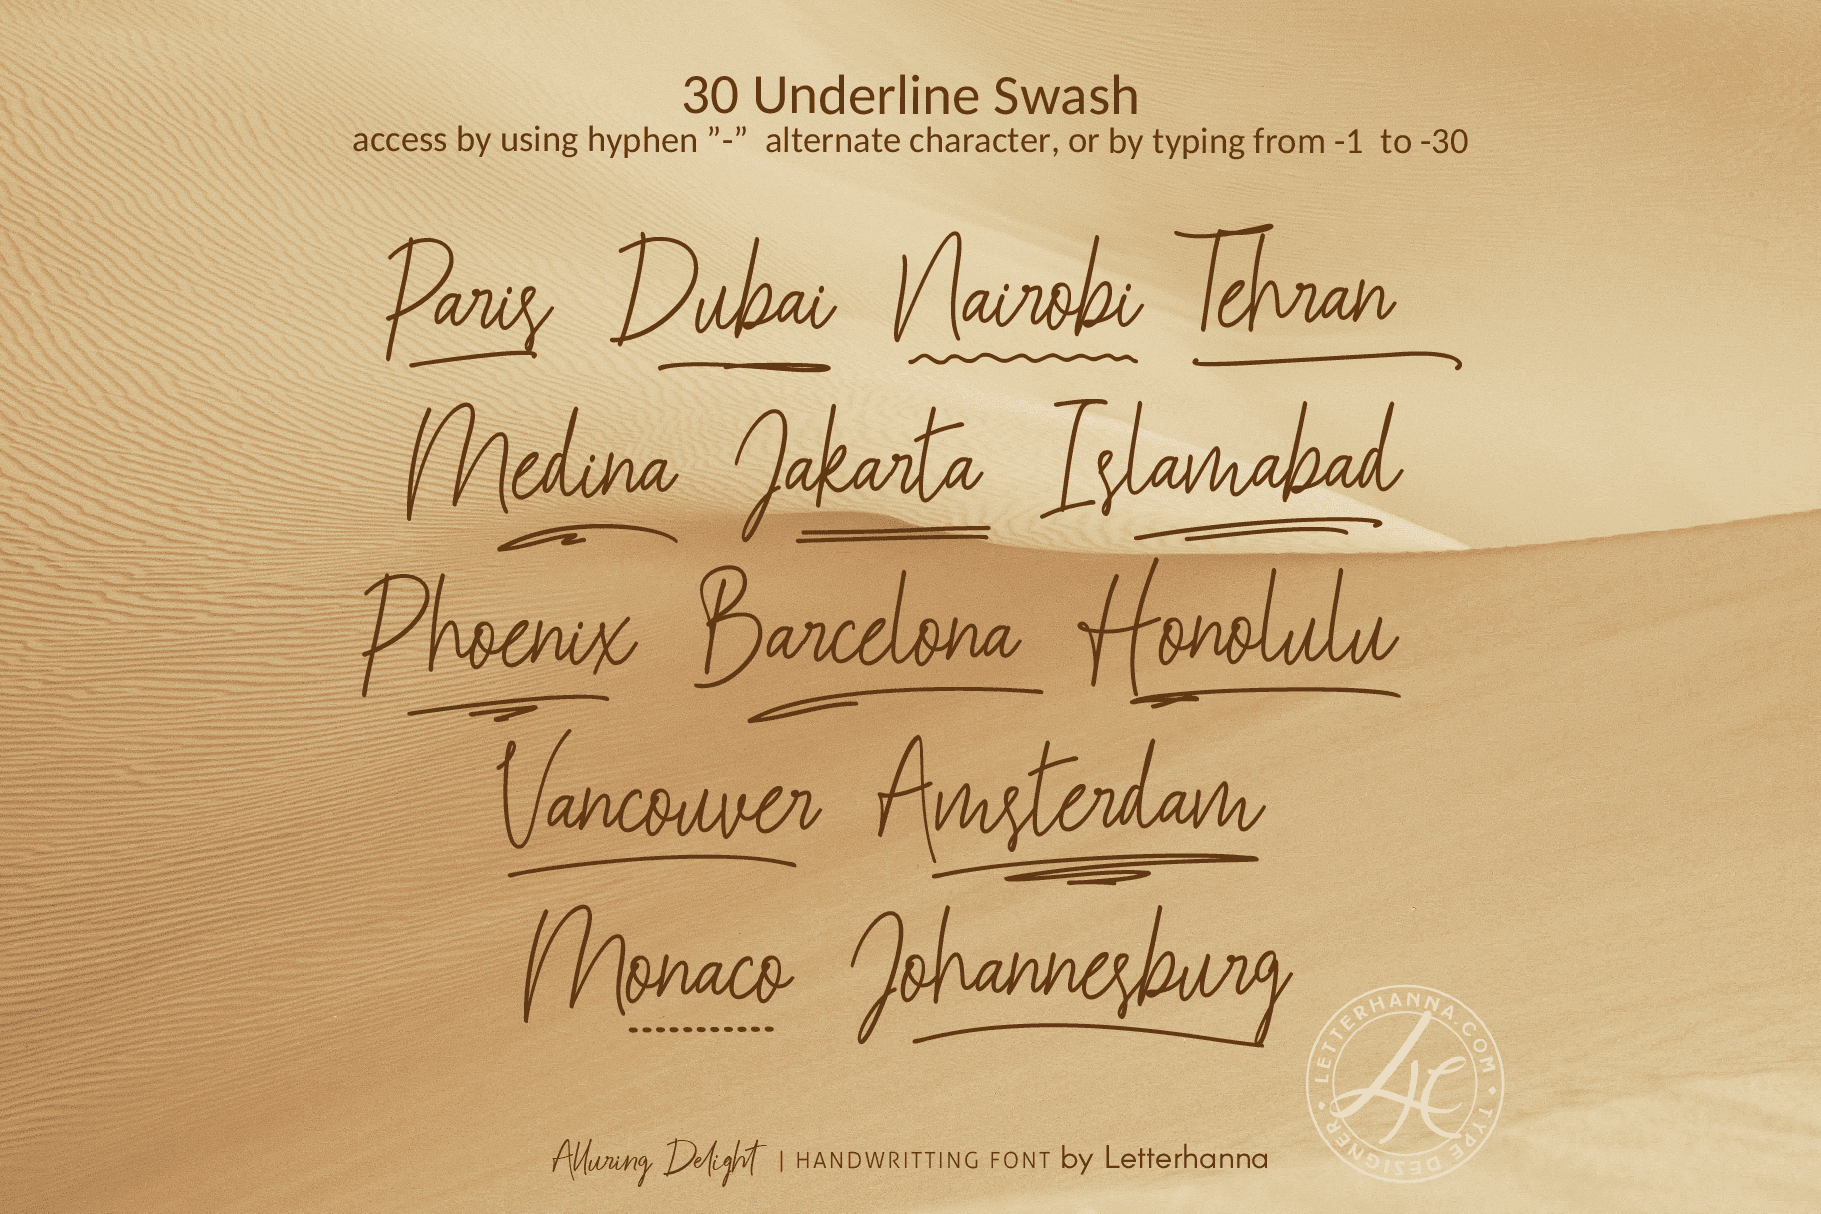 30 Underline Swash
access by using hyphen ”-” alternate character, or by typing from -1 to -30
Paris Dubai Nairobi Tehran
Medina Jakarta Islamabad
Phoenix Barcelona Honolulu
Vancouver Amsterdam
Monaco Johannesburg
Alluring Delight | HANDWRITTING FONT by Letterhanna
LETTERHANNA.COM • TYPE DESIGNER •